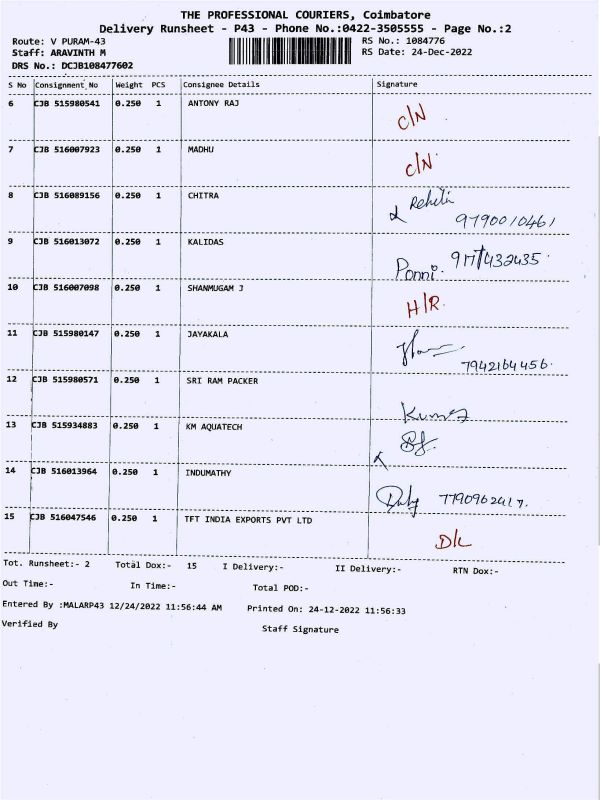 THE PROFESSIONAL COURIERS, Coimbatore
Delivery Runsheet - P43 - Phone No.:0422-3505555 - Page No.:2
Route: V PURAM-43 RS No.: 1084776
Staff: ARAVINTH M RS Date: 24-Dec-2022
DRS No.: DCJB108477602
S No Consignment No Weight PCS Consignee Details Signature
6 CJB 515980541 0.250 1 ANTONY RAJ C/N
7 CJB 516007923 0.250 1 MADHU C/N
8 CJB 516089156 0.250 1 CHITRA 9790010461
9 CJB 516013072 0.250 1 KALIDAS Ponni.
10 CJB 516007098 0.250 1 SHANMUGAM J H/R
11 CJB 515980147 0.250 1 JAYAKALA 7942164456.
12 CJB 515980571 0.250 1 SRI RAM PACKER
13 CJB 515934883 0.250 1 KM AQUATECH
14 CJB 516013964 0.250 1 INDUMATHY
15 CJB 516047546 0.250 1 TFT INDIA EXPORTS PVT LTD D/L
Tot. Runsheet:- 2 Total Dox:- 15 I Delivery:- II Delivery:- RTN Dox:-
Out Time:- In Time:- Total POD:-
Entered By :MALARP43 12/24/2022 11:56:44 AM Printed On: 24-12-2022 11:56:33
Verified By Staff Signature